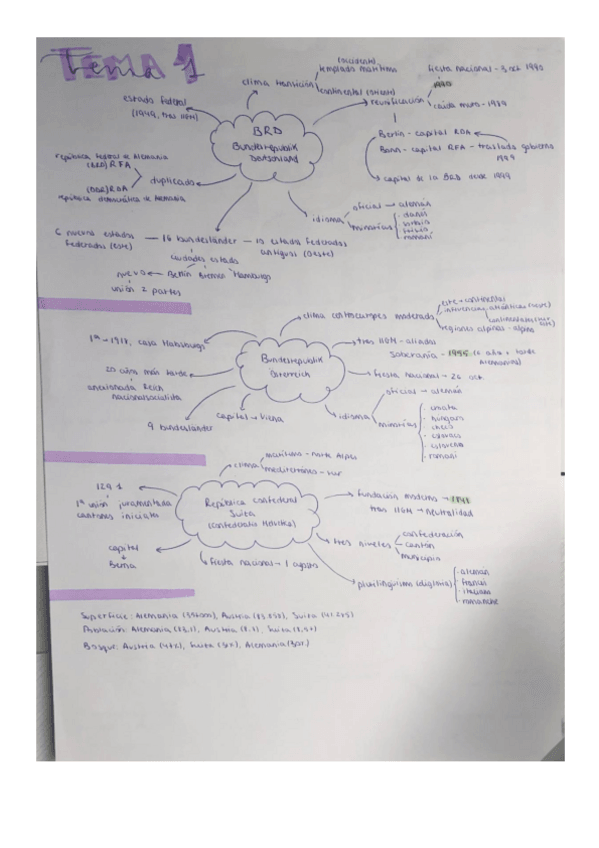 Tema 1
clima transición
(occidental)
templado marítimo
continental (oriente)
fiesta nacional - 3 oct 1990
reunificación
1990
caída muro - 1989
estado federal
(1949, tras IIGM)
BRD
Bundesrepublik
Deutschland
Berlín - capital RDA
Bonn - capital RFA - traslado gobierno
1999
capital de la BRD desde 1999
república federal de Alemania
(BRD) RFA
duplicado
(DDR) RDA
república democrática de Alemania
idioma
oficial → alemán
minorías
· danés
· sorbio
· frisio
· romaní
6 nuevos estados
federados (este)
16 bundesländer
10 estados federados
antiguos (oeste)
ciudades estado
nueva ← Berlín Bremen Hamburgo
unión 2 partes
clima centroeuropeo moderado
este → continental
regiones alpinas - alpino
1ª → 1918, casa Habsburgo
tras IIGM - aliados
Soberanía - 1955 (6 años + tarde
Alemania)
Bundesrepublik
Österreich
20 años más tarde
anexionada Reich
nacionalsocialista
fiesta nacional → 26 oct.
capital → Viena
9 bundesländer
idioma
oficial → alemán
minorías
· croata
· húngaro
· checo
· eslovaco
· esloveno
· romaní
clima
marítimo - norte Alpes
mediterráneo - sur
1291
1ª unión juramentada
cantones iniciales
República confederal
Suiza
(Confoederatio Helvetica)
fundación moderna → 1848
tras IIGM → neutralidad
tres niveles
confederación
cantón
municipio
capital
Berna
fiesta nacional → 1 agosto
plurilingüismo (diglosia)
· alemán
· francés
· italiano
· romanche
Superficie: Alemania (357.000), Austria (83.858), Suiza (41.285)
Población: Alemania (83,1), Austria (8,9), Suiza (8,5)
Bosque: Austria (47%), Suiza (31%), Alemania (30%)